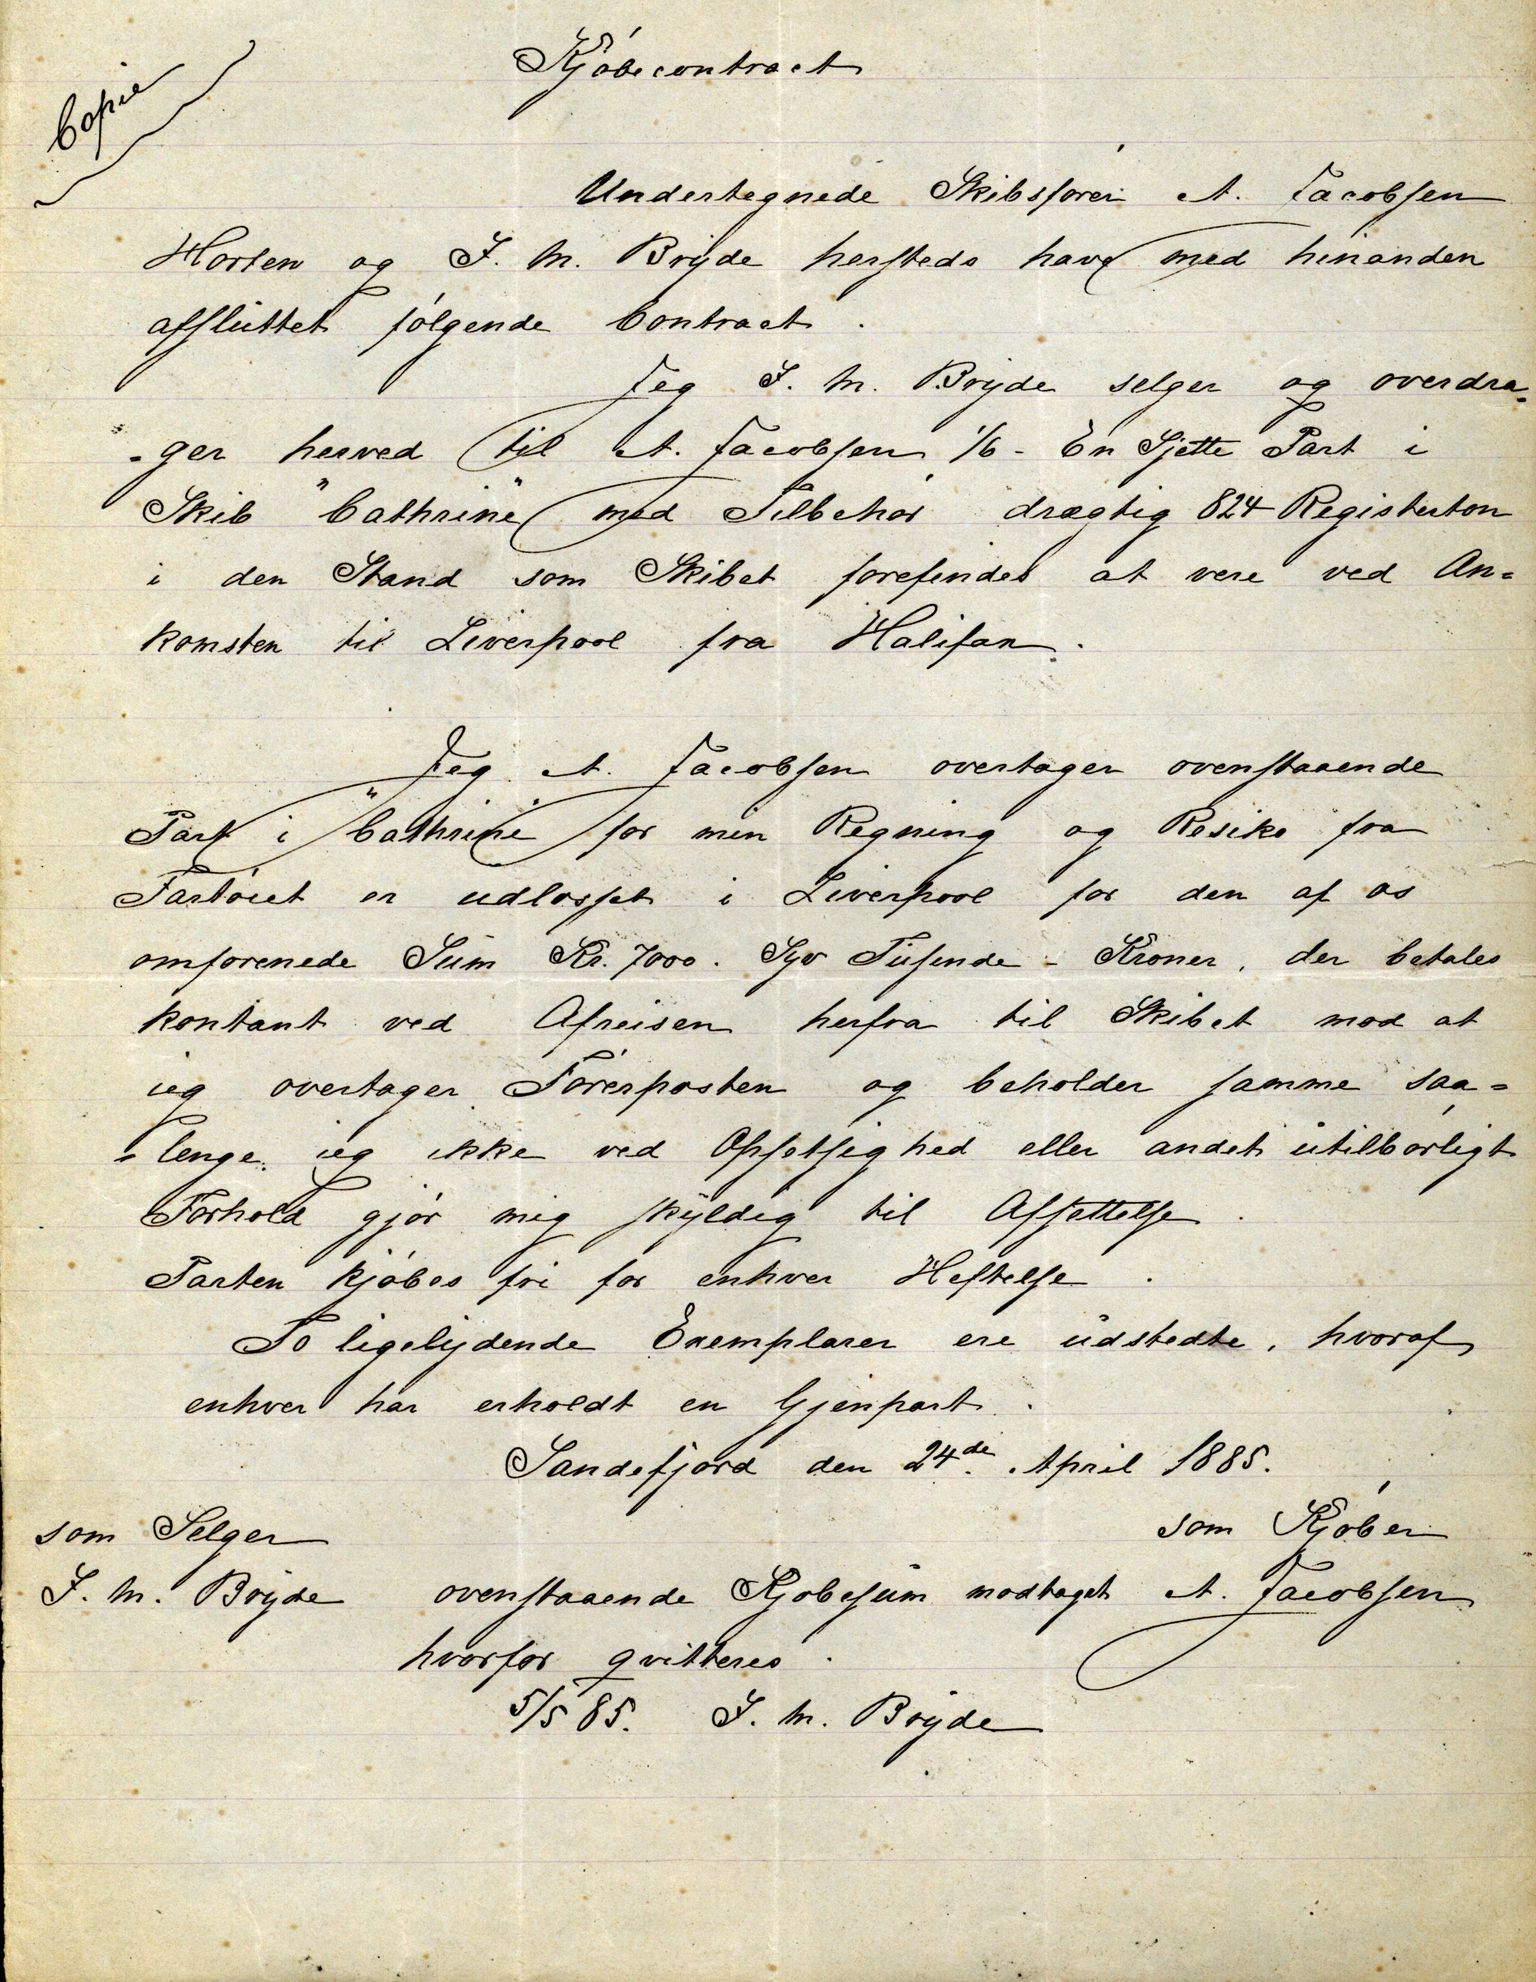 Copie
Kjöbecontract
Undertegnede Skibsförer A. Jacobsen
Horten og J. M. Bryde hersteds have med hinanden
afsluttet fölgende Contract.
Jeg J. M. Bryde selger og overdra-
-ger herved til A. Jacobsen 1/6 - En Sjette Part i
Skib "Cathrine" med Tilbehör drægtig 824 Registerton
i den Stand som Skibet forefindes at vere ved An=
komsten til Liverpool fra Halifax.
Jeg A. Jacobsen overtager ovenstaaende
Part i "Cathrine" for min Regning og Resiko fra
Fartöiet er udlosset i Liverpool for den af os
omforenede Sum Kr. 7000. Syv Tusende - Kroner, der betales
kontant ved Afreisen herfra til Skibet mod at
jeg overtager Förerposten og beholder samme saa=
=lenge jeg ikke ved Opsetsighed eller andet utilbörligt
Forhold gjör mig skyldig til Afsettelse.
Parten kjöbes fri for enhver Heftelse.
To ligelydende Exemplarer ere udstedte, hvoraf
enhver har erholdt en Gjenpart.
Sandefjord den 24de April 1885.
som Selger som Kjöber
J. M. Bryde ovenstaaende Kjöbesum modtaget A. Jacobsen
hvorfor qvitteres.
5/5 85. J. M. Bryde